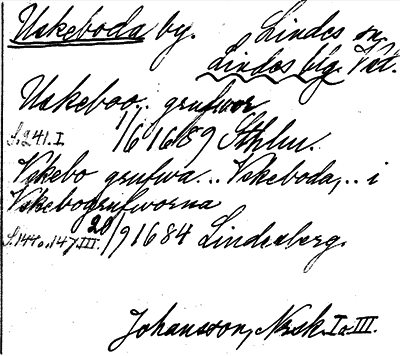 Uskeboda by. Lindes sn.
Lindes blg. Vst.
Uskeboo, grufwor
1/6 1659 Sthlm.
S. 241. I.
Vskebo grufwa... Vskeboda,.. i
Vskebogrufworna
S. 144 o. 147. III. 20/9 1684 Lindesberg.
Johansson, Norsk. I o. III.